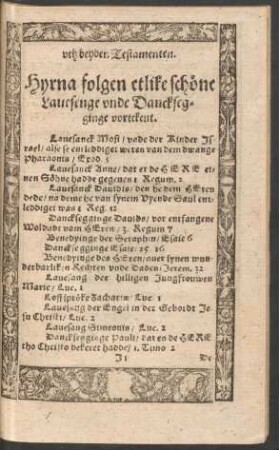 vth beyder Testamenten.
Hyrna folgen etlike schöne
Lauesenge vnde Danckseg-
ginge vortekent.
Lauesanck Mosi / vnde der Kinder Js-
rael / alse se entleddiget weren van dem dwange
Pharaonis / Exod. 5
Lauesanck Anne / dat er de HERE ei-
nen Söhne hadde gegeuen 1 Regum. 2
Lauesanck Dauidis / den he dem HEren
dede / na deme he van synem Vyende Saul ent-
leddiget was 1 Reg. 12
Dancksegginge Dauids / vor entfangene
Woldadt vam HEren / 3. Regum 7
Benedyinge der Seraphin / Esaie 6
Dancksegginge Esaie. 25 26
Benedyinge des HEren / auer synen wun-
derbarliken Rechten vnde Daden / Jerem. 32
Lauesang der hilligen Jungfrouwen
Marie / Luc. 1
Loffspröke Zacharie / Luc 1
Lauesang der Engel in der Gebordt Je-
su Christi / Luc. 2
Lauesang Simeonis / Luc. 2
Dancksegginge Pauli / dat en de HERE
tho Christo bekeret hadde / 1. Timo 2
De